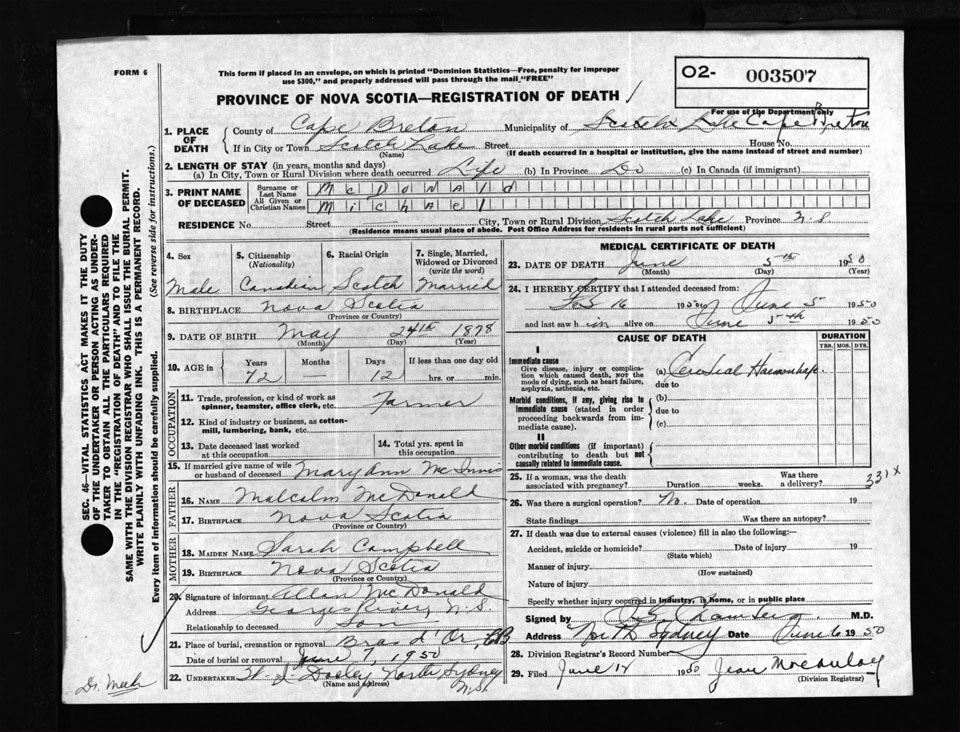 FORM 6
This form if placed in an envelope, on which is printed "Dominion Statistics—Free, penalty for improper
use $300," and properly addressed will pass through the mail "FREE"
O2- 003507
For use of the Department only
PROVINCE OF NOVA SCOTIA—REGISTRATION OF DEATH
1. PLACE OF DEATH
County of Cape Breton Municipality of Scotch Lake Cape Breton
If in City or Town Scotch Lake Street House No.
(Name) (If death occurred in a hospital or institution, give the name instead of street and number)
2. LENGTH OF STAY (in years, months and days)
(a) In City, Town or Rural Division where death occurred Life (b) In Province Do (c) In Canada (if immigrant)
3. PRINT NAME OF DECEASED
Surname or Last Name McDonald
All Given or Christian Names Michael
RESIDENCE No. Street City, Town or Rural Division Scotch Lake Province N.S
(Residence means usual place of abode. Post Office Address for residents in rural parts not sufficient)
4. Sex
Male
5. Citizenship (Nationality)
Canadian
6. Racial Origin
Scotch
7. Single, Married, Widowed or Divorced (write the word)
Married
8. BIRTHPLACE Nova Scotia
(Province or Country)
9. DATE OF BIRTH May 24th 1878
(Month) (Day) (Year)
10. AGE in Years Months Days If less than one day old
72 — 12 hrs. or min.
OCCUPATION
11. Trade, profession, or kind of work as spinner, teamster, office clerk, etc. Farmer
12. Kind of industry or business, as cotton-mill, lumbering, bank, etc.
13. Date deceased last worked at this occupation
14. Total yrs. spent in this occupation
15. If married give name of wife or husband of deceased Mary Ann McInnis
FATHER
16. NAME Malcolm McDonald
17. BIRTHPLACE Nova Scotia
(Province or Country)
MOTHER
18. MAIDEN NAME Sarah Campbell
19. BIRTHPLACE Nova Scotia
(Province or Country)
20. Signature of informant Allan McDonald
Address Georges River, N.S.
Relationship to deceased Son
21. Place of burial, cremation or removal Bras d'Or, CB
Date of burial or removal June 7, 1950
22. UNDERTAKER Dooley North Sydney N.S.
(Name and Address)
MEDICAL CERTIFICATE OF DEATH
23. DATE OF DEATH June 5th 1950
(Month) (Day) (Year)
24. I HEREBY CERTIFY that I attended deceased from:
Feb 16 1950 to June 5 1950
and last saw him alive on June 5th 1950
CAUSE OF DEATH
DURATION
YRS. MOS. DYS.
I
Immediate cause
Give disease, injury or complication which caused death, not the mode of dying, such as heart failure, asphyxia, asthenia, etc.
(a) Cerebral Haemorrhage
due to
Morbid conditions, if any, giving rise to immediate cause (stated in order proceeding backwards from immediate cause).
(b)
due to
(c)
II
Other morbid conditions (if important) contributing to death but not causally related to immediate cause.
25. If a woman, was the death associated with pregnancy? Duration weeks. Was there a delivery?
331X
26. Was there a surgical operation? No. Date of operation 19
State findings Was there an autopsy?
27. If death was due to external causes (violence) fill in also the following:—
Accident, suicide or homicide? Date of injury 19
(State which)
Manner of injury
(How sustained)
Nature of injury
Specify whether injury occurred in industry, in home, or in public place
Signed by M.D.
Address North Sydney Date June 6 1950
28. Division Registrar's Record Number
29. Filed June 12 1950 Jean
(Division Registrar)
SEC. 46—VITAL STATISTICS ACT MAKES IT THE DUTY
OF THE UNDERTAKER OR PERSON ACTING AS UNDER-
TAKER TO OBTAIN ALL THE PARTICULARS REQUIRED
IN THE "REGISTRATION OF DEATH" AND TO FILE THE
SAME WITH THE DIVISION REGISTRAR WHO SHALL ISSUE THE BURIAL PERMIT.
WRITE PLAINLY WITH UNFADING INK. THIS IS A PERMANENT RECORD.
Every item of information should be carefully supplied. (See reverse side for instructions.)